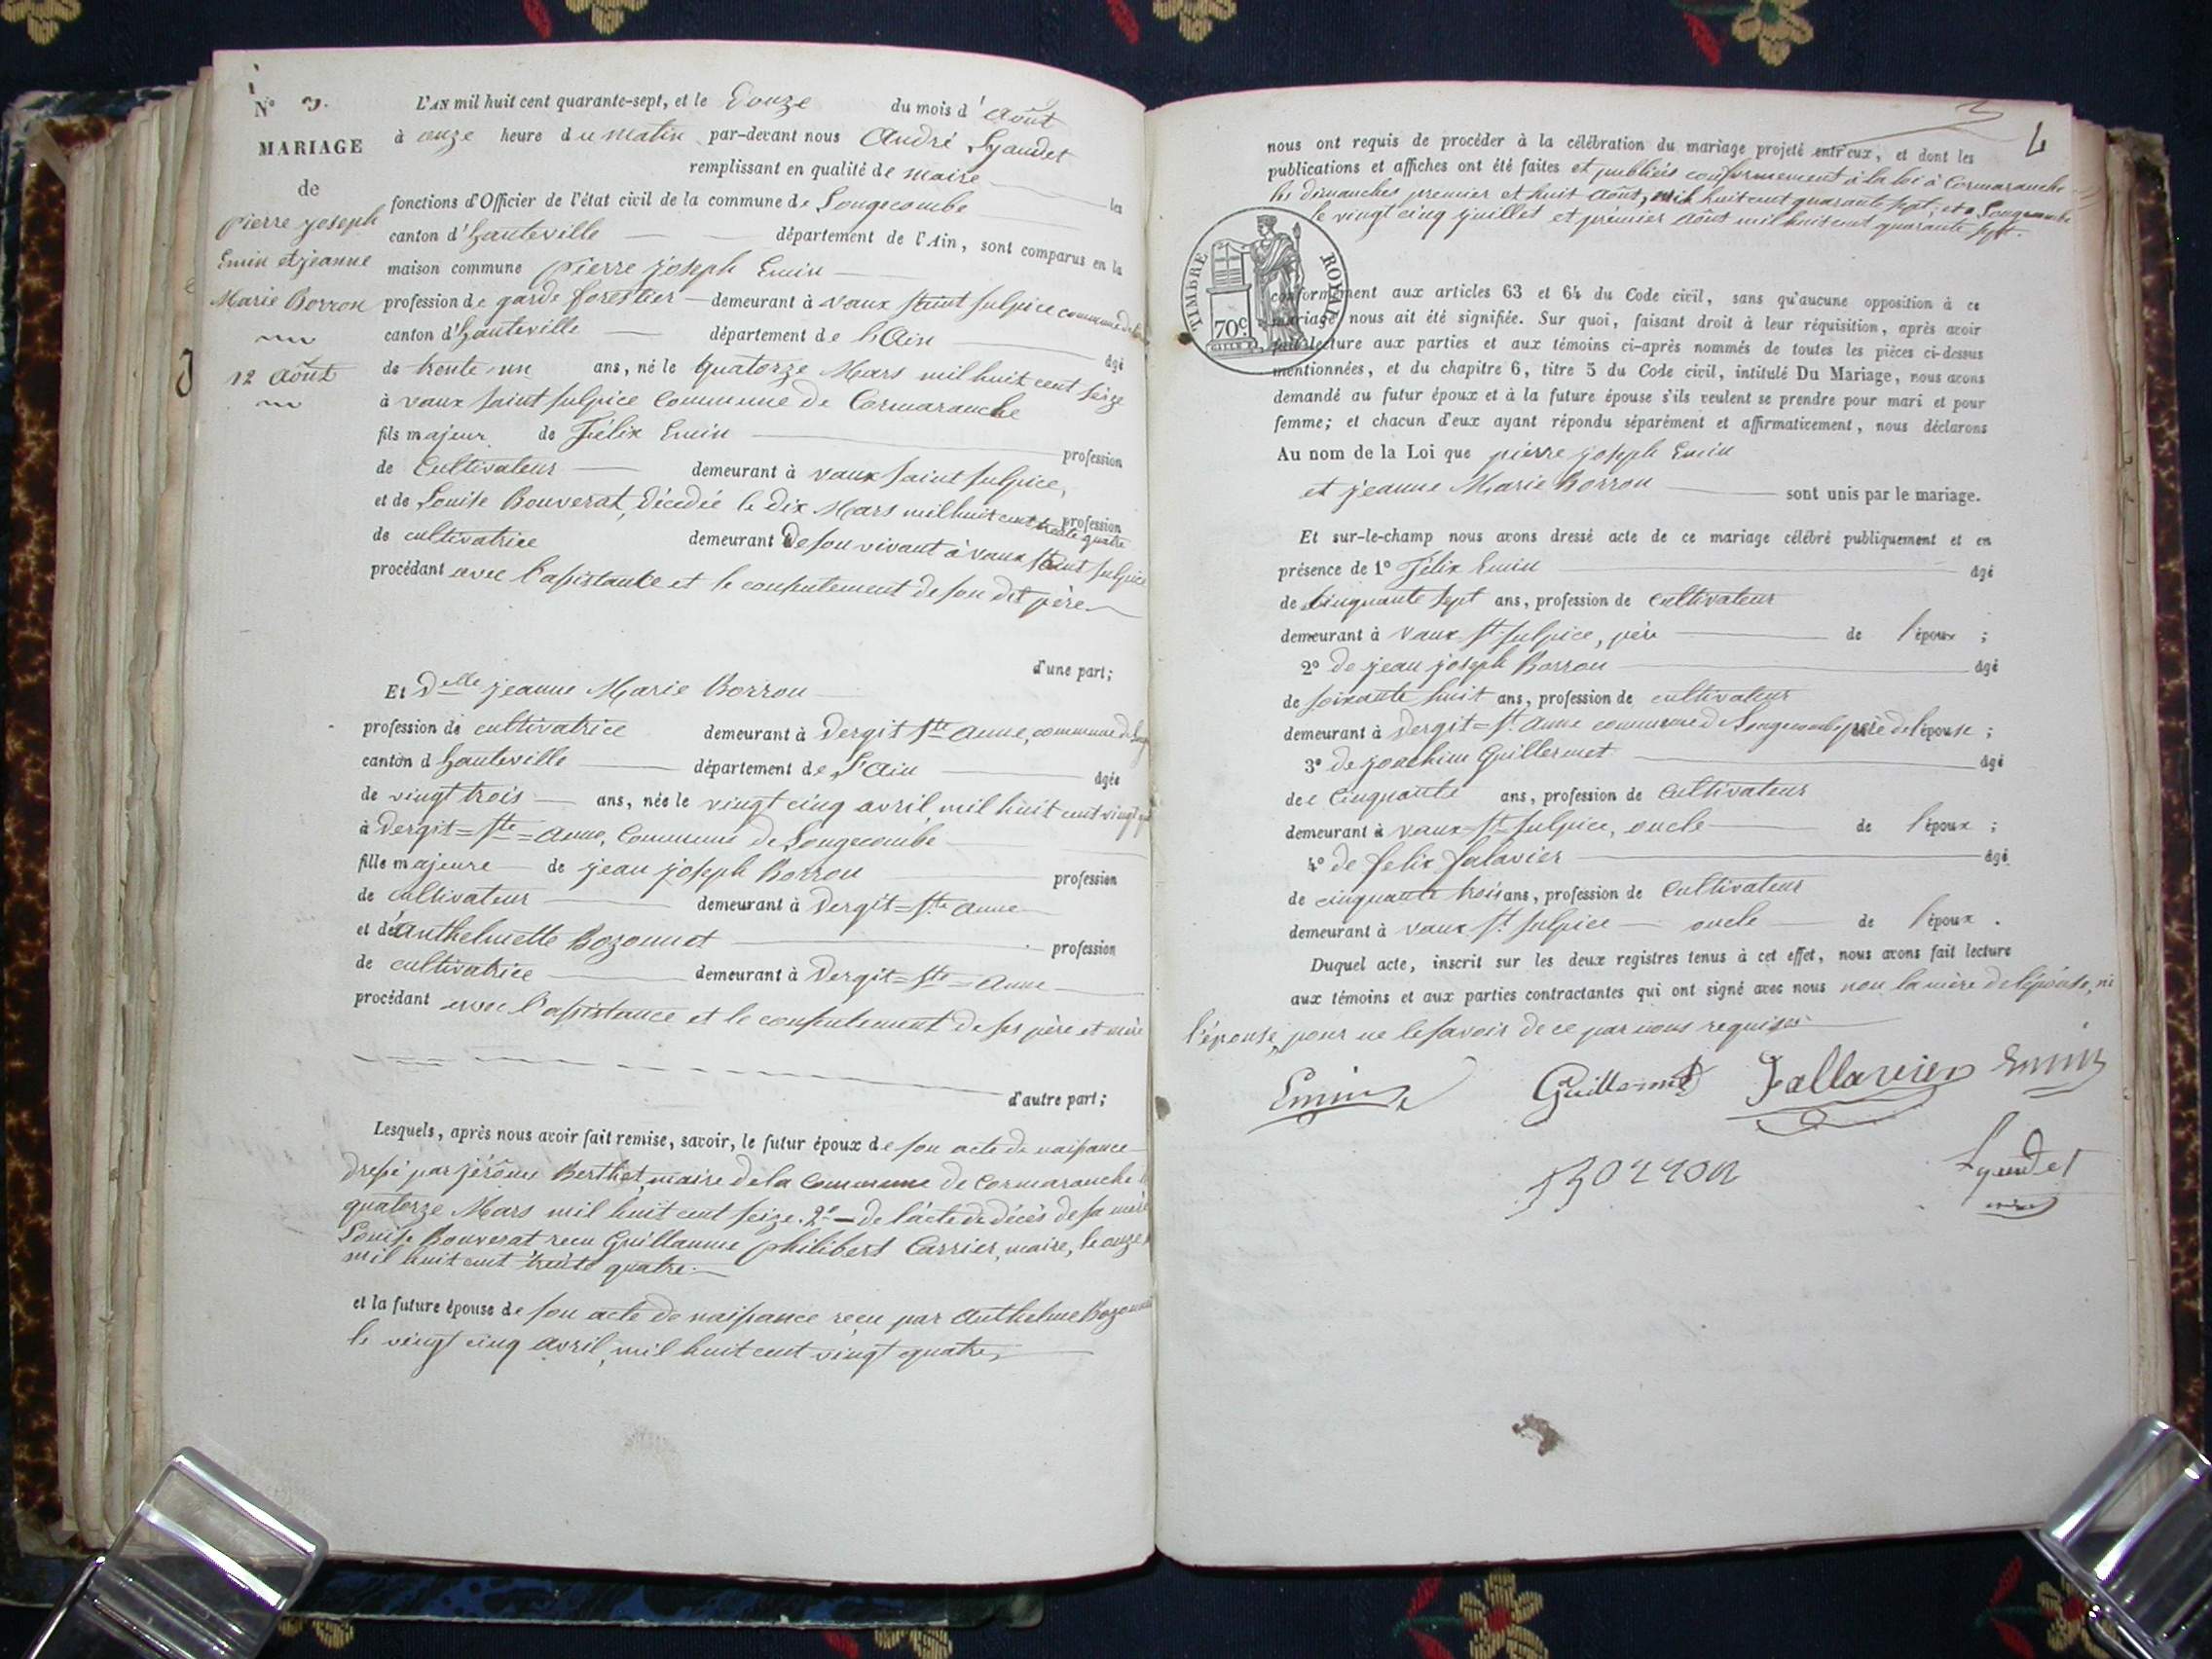 N° 3.
MARIAGE
de
pierre joseph
Emin et jeanne
Marie Borron
12 août
L'AN mil huit cent quarante-sept, et le Douze du mois d'août
à onze heure du matin par-devant nous André Lyaudet
remplissant en qualité de maire les
fonctions d'Officier de l'état civil de la commune de Longecombe
canton d'hauteville département de l'Ain, sont comparus en la
maison commune pierre joseph Emin
profession de garde forestier demeurant à vaux saint sulpice commune de
canton d'hauteville département de l'Ain âgé
de trente-un ans, né le quatorze Mars mil huit cent seize
à vaux saint sulpice commune de Cormaranche
fils majeur de Félix Emin profession
de Cultivateur demeurant à vaux saint sulpice,
et de Louise Bouverat, décédée le dix Mars mil huit cent trente quatre profession
de cultivatrice demeurant De son vivant à vaux saint sulpice
procédant avec l'assistance et le consentement de son dit père
d'une part;
Et Delle jeanne Marie Borron
profession de cultivatrice demeurant à Dergit Ste anne, commune de
canton d hauteville département de l'Ain âgée
de vingt trois ans, née le vingt cinq avril, mil huit cent vingt
à Dergit=Ste=anne, commune de Longecombe
fille majeure de jean joseph Borron profession
de cultivateur demeurant à Dergit=Ste anne
et d'anthelmette Bozonnet profession
de cultivatrice demeurant à Dergit=Ste=anne
procédant avec l'assistance et le consentement de ses père et mère
d'autre part;
Lesquels, après nous avoir fait remise, savoir, le futur époux de son acte de naissance
dressé par jérôme Berthet, maire de la commune de Cormaranche
quatorze Mars mil huit cent seize. 2° de l'acte de décès de sa mère
Louise Bouverat recu Guillaume philibert Carrier, maire, le onze
mil huit cent trente quatre.
et la future épouse de son acte de naissance reçu par Anthelme Bozonnet
le vingt cinq avril, mil huit cent vingt quatre,
4
nous ont requis de procéder à la célébration du mariage projeté entr'eux, et dont les
publications et affiches ont été faites et publiés conformement à la loi à Cormaranche
les dimanches premier et huit août, mil huit cent quarante sept, et à Longecombe
le vingt cinq juillet et premier août mil huit cent quarante sept.
TIMBRE ROYAL
70c
conformément aux articles 63 et 64 du Code civil, sans qu'aucune opposition à ce
mariage nous ait été signifiée. Sur quoi, faisant droit à leur réquisition, après avoir
fait lecture aux parties et aux témoins ci-après nommés de toutes les pièces ci-dessus
mentionnées, et du chapitre 6, titre 5 du Code civil, intitulé Du Mariage, nous avons
demandé au futur époux et à la future épouse s'ils veulent se prendre pour mari et pour
femme; et chacun d'eux ayant répondu séparément et affirmativement, nous déclarons
Au nom de la Loi que pierre joseph Emin
et jeanne Marie Borron sont unis par le mariage.
Et sur-le-champ nous avons dressé acte de ce mariage célébré publiquement et en
présence de 1° Félix Emin âgé
de cinquante sept ans, profession de cultivateur
demeurant à vaux St sulpice, père de l'époux ;
2° de jean joseph Borron âgé
de soixante huit ans, profession de cultivateur
demeurant à Dergit=St anne commune de Longecombe père de l'épouse ;
3° de joachim Guillermet âgé
de cinquante ans, profession de cultivateur
demeurant à vaux-St sulpice, oncle de l'époux ;
4° de felix falavier âgé
de cinquante trois ans, profession de Cultivateur
demeurant à vaux St sulpice oncle de l'époux .
Duquel acte, inscrit sur les deux registres tenus à cet effet, nous avons fait lecture
aux témoins et aux parties contractantes qui ont signé avec nous non la mère de l'épouse, ni
l'épouse, pour ne le savoir de ce par nous requises
Emin Guillermet Fallavier Emin
Borron Lyaudet
maire